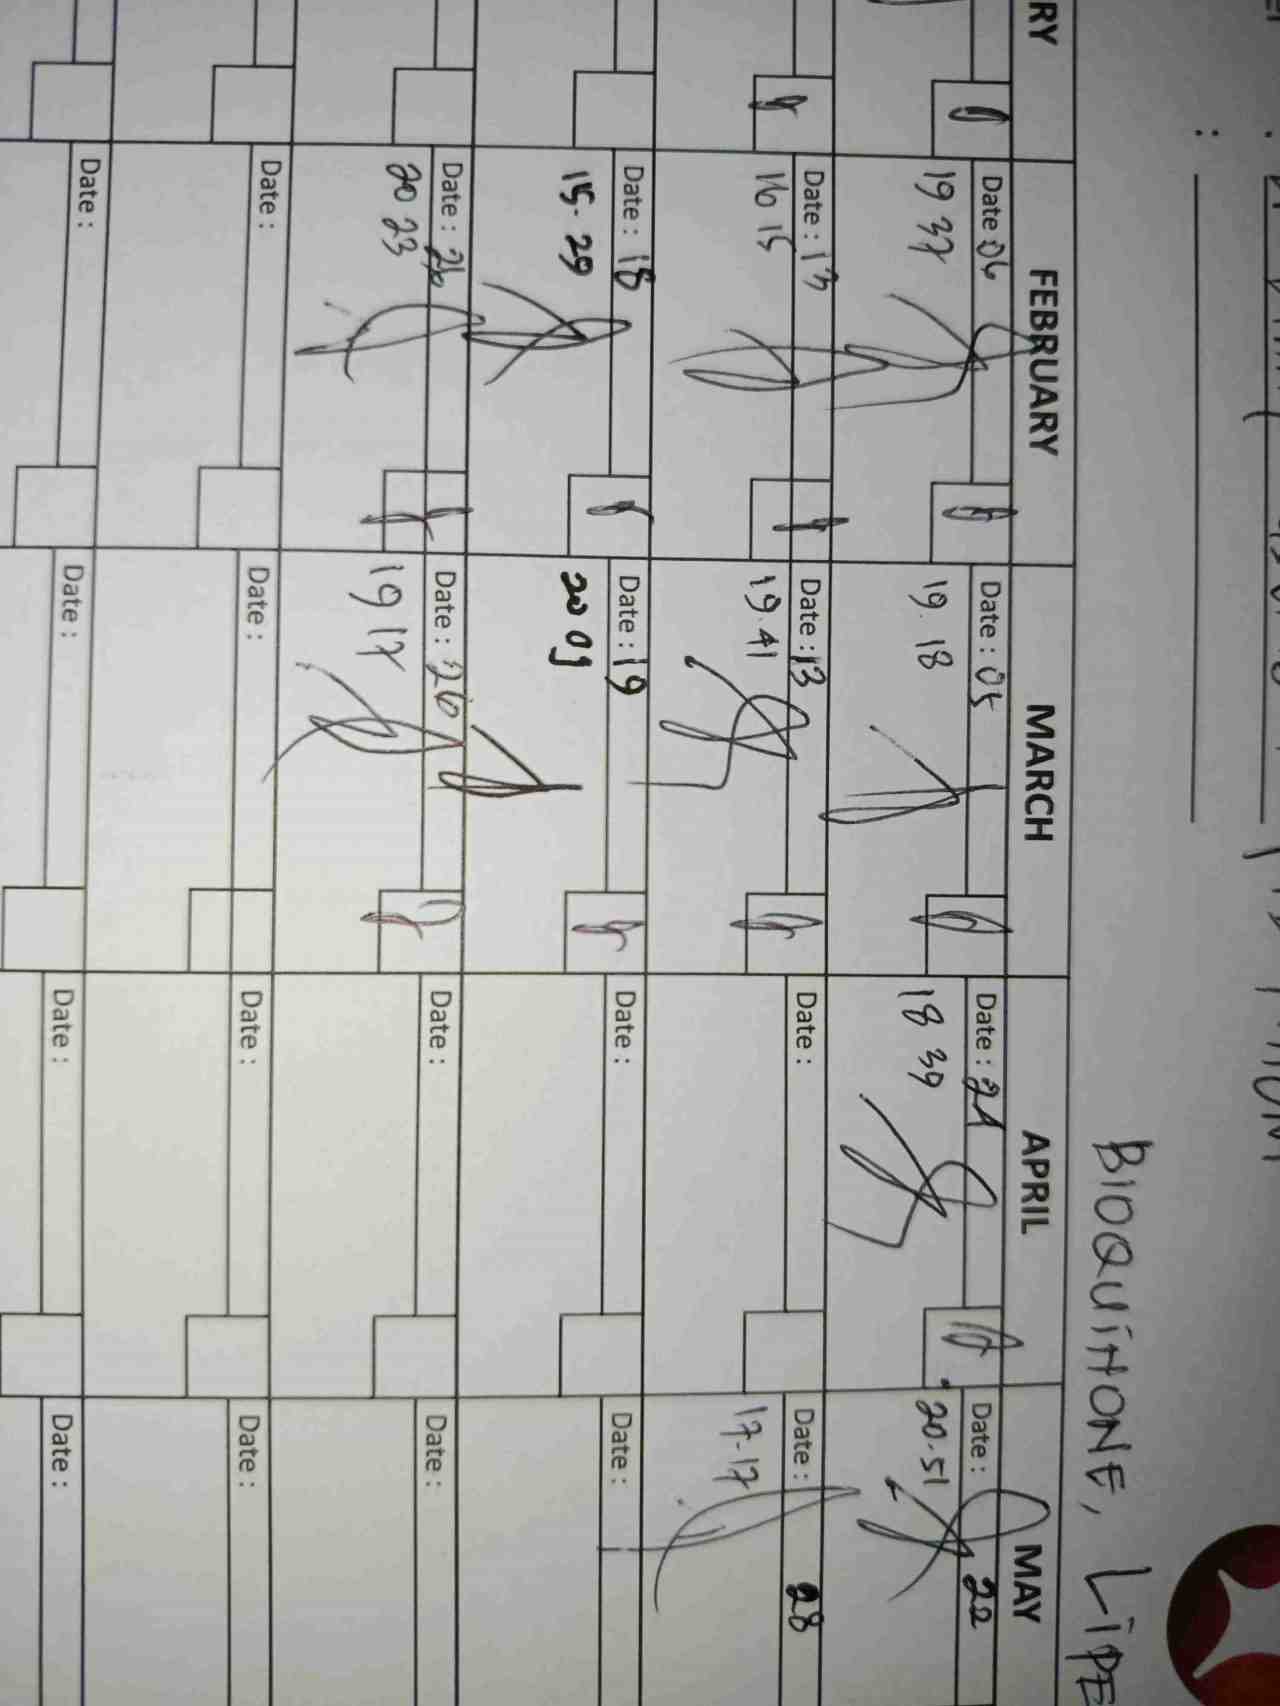 :
BIOQUINONE, LIPE
RY FEBRUARY MARCH APRIL MAY
Date : 06 Date : 05 Date : 21 Date : 22
19 37 19. 18 18 39 20.51
Date : 13 Date : 13 Date : Date : 28
16 15 19.41 17-17
Date : 18 Date : 19 Date : Date :
15- 29 20 09
Date : 26 Date : 26 Date : Date :
20 23 19 17
Date : Date : Date : Date :
Date : Date : Date : Date :